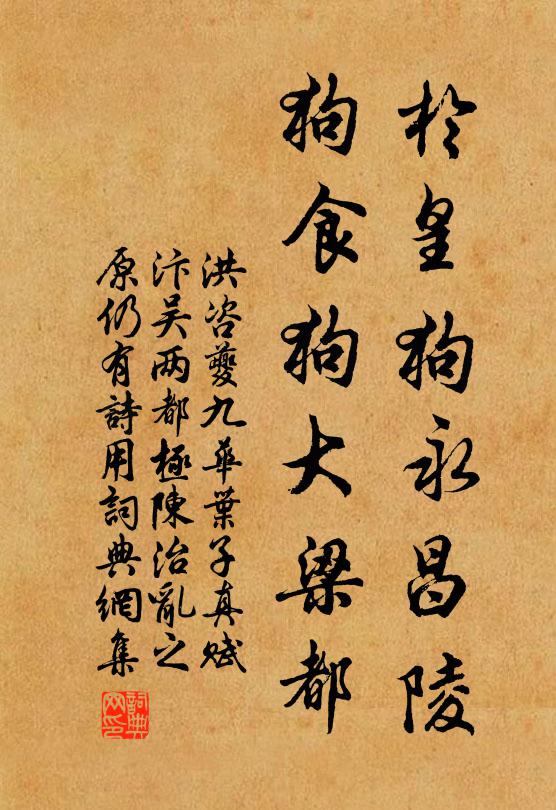 於皇狗永昌陵
狗食狗大梁都
洪咨夔九華葉子真賦
汴吴两都極陳治亂之
原仍有詩用詞典網集
詞典网印